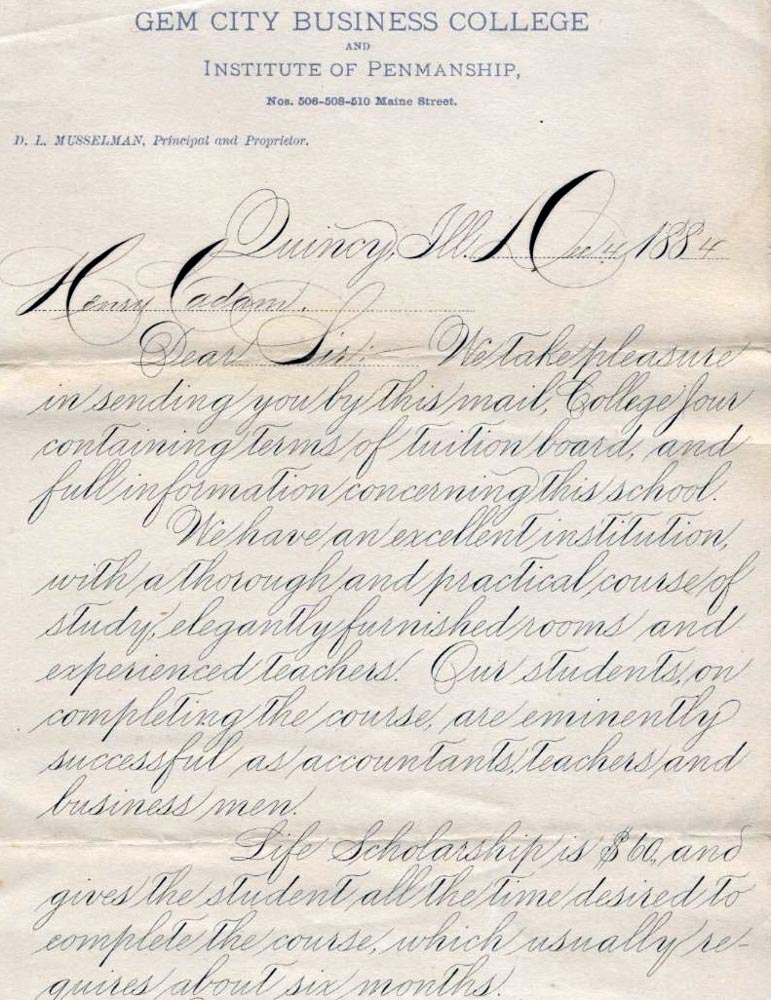 GEM CITY BUSINESS COLLEGE
AND
INSTITUTE OF PENMANSHIP,
Nos. 506-508-510 Maine Street.
D. L. MUSSELMAN, Principal and Proprietor.
Quincy, Ill. Dec 4, 1884
Henry Cadam.
Dear Sir:— We take pleasure
in sending you by this mail, College Jour
containing terms of tuition board, and
full information concerning this school.
We have an excellent institution,
with a thorough and practical course of
study, elegantly furnished rooms and
experienced teachers. Our students, on
completing the course, are eminently
successful as accountants, teachers and
business men.
Life Scholarship is $60, and
gives the student all the time desired to
complete the course, which usually re-
quires about six months.